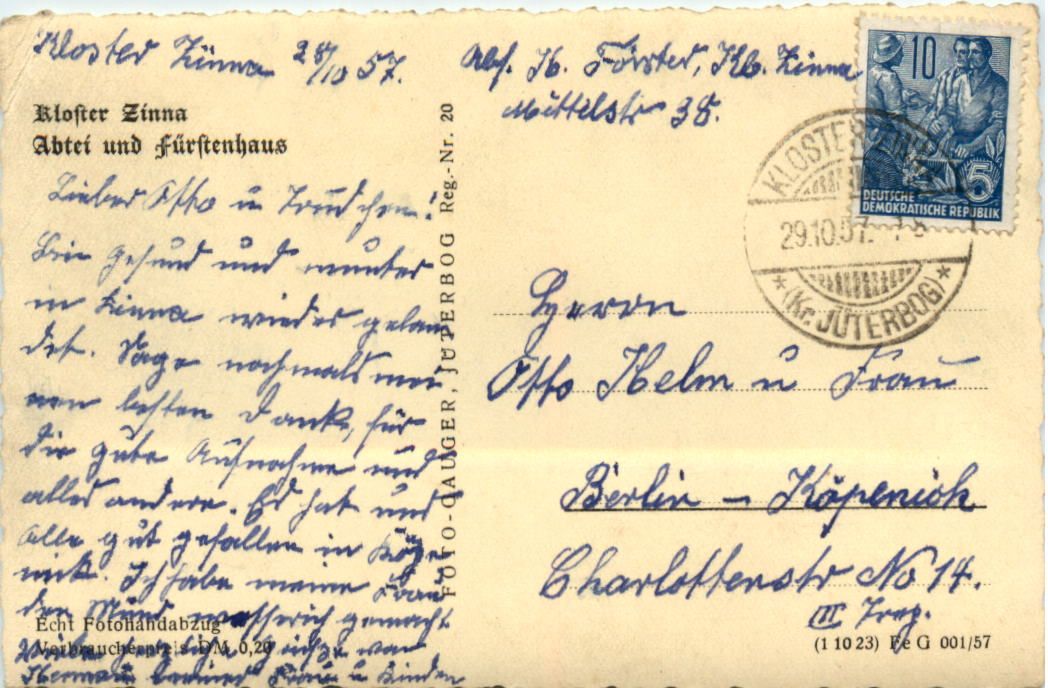 Kloster Zinna 28/10 57.
Kloster Zinna
Abtei und Fürstenhaus
Lieber Otto u Trudchen!
Bin gesund und munter
in Zinna wieder gelan
det. Sage nochmals mei
nen besten Dank, für
die gute Aufnahme und
alles andere. Es hat uns
Alle gut gefallen in Köpe
nik. Ich habe meine Frau
den Mund wässerich gemacht
Echt Fotohandabzug
Verbraucherpreis DM 0,20
Frau u Kinder
FOTO-DAUGER, JÜTERBOG Reg.-Nr. 20
Abs. H. Förster, Klo. Zinna
Mittelstr 38.
10
5
DEUTSCHE
DEMOKRATISCHE REPUBLIK
KLOSTER ZINNA
29.10.57.
(Kr. JÜTERBOG)
Herrn
Otto Helm u Frau
Berlin - Köpenick
Charlottenstr No 14.
III Trep.
(1 10 23) Fe G 001/57